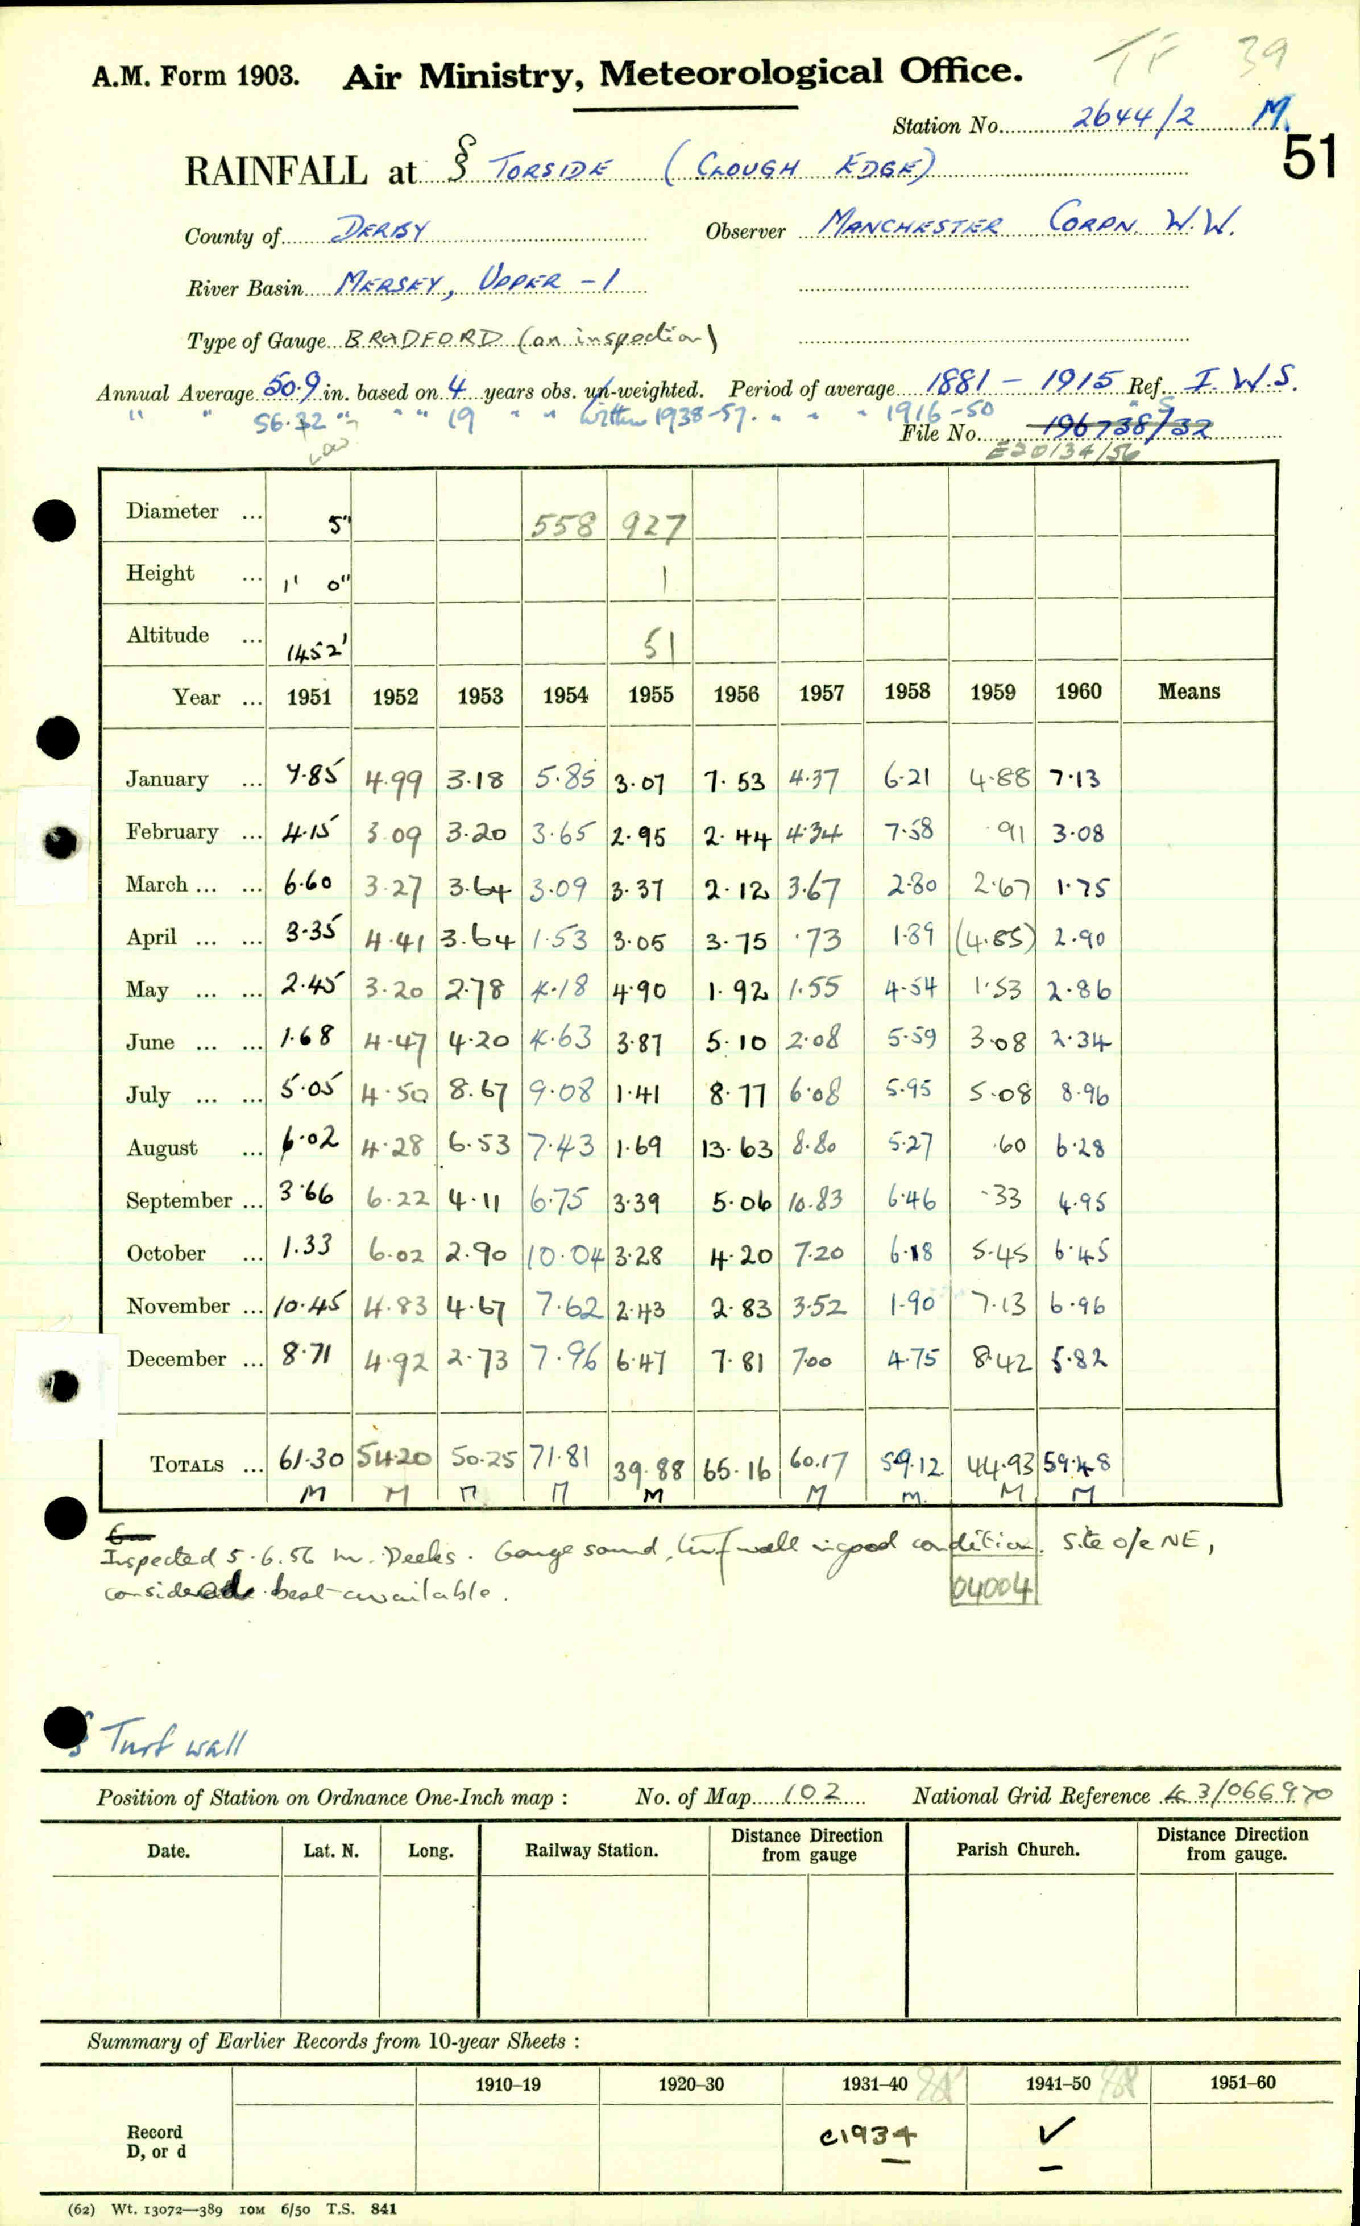 TF 39
A.M. Form 1903. Air Ministry, Meteorological Office.
Station No. 2644/2 M.
51
RAINFALL at § TORSIDE (CLOUGH EDGE)
County of DERBY Observer MANCHESTER CORPN. W.W.
River Basin MERSEY, UPPER -1
Type of Gauge BRADFORD (on inspection)
Annual Average 50.9 in. based on 4 years obs. un-weighted. Period of average 1881 - 1915 Ref. I.W.S.
" " 56.32 " " " 19 " " within 1938-57. " " " 1916-50 " S
Low
File No. 196738/32
E20134/56
Diameter ... 5" 558 927
Height ... 1' 0" 1
Altitude ... 1452' 51
Year ... 1951 1952 1953 1954 1955 1956 1957 1958 1959 1960 Means
January ... 7.85 4.99 3.18 5.85 3.07 7.53 4.37 6.21 4.88 7.13
February ... 4.15 3.09 3.20 3.65 2.95 2.44 4.34 7.58 .91 3.08
March ... ... 6.60 3.27 3.64 3.09 3.37 2.12 3.67 2.80 2.67 1.75
April ... ... 3.35 4.41 3.64 1.53 3.05 3.75 .73 1.89 (4.85) 2.90
May ... ... 2.45 3.20 2.78 4.18 4.90 1.92 1.55 4.54 1.53 2.86
June ... ... 1.68 4.47 4.20 4.63 3.87 5.10 2.08 5.59 3.08 2.34
July ... ... 5.05 4.50 8.67 9.08 1.41 8.77 6.08 5.95 5.08 8.96
August ... 6.02 4.28 6.53 7.43 1.69 13.63 8.80 5.27 .60 6.28
September ... 3.66 6.22 4.11 6.75 3.39 5.06 10.83 6.46 .33 4.95
October ... 1.33 6.02 2.90 10.04 3.28 4.20 7.20 6.18 5.45 6.45
November ... 10.45 4.83 4.67 7.62 2.43 2.83 3.52 1.90 7.13 6.96
December ... 8.71 4.92 2.73 7.96 6.47 7.81 7.00 4.75 8.42 5.82
TOTALS ... 61.30 54.20 50.25 71.81 39.88 65.16 60.17 59.12 44.93 59.48
M M M M M M M M M
Inspected 5.6.56 Mr. Deeks. Gauge sound, turf wall in good condition. Site o/e NE,
considered best available.
04004
§ Turf wall
Position of Station on Ordnance One-Inch map : No. of Map 102 National Grid Reference 43/066970
Date. Lat. N. Long. Railway Station. Distance Direction from gauge Parish Church. Distance Direction from gauge.
Summary of Earlier Records from 10-year Sheets :
1910–19 1920–30 1931–40 1941–50 1951–60
Record
D, or d
c1934 ✓
(62) Wt. 13072—389 10M 6/50 T.S. 841